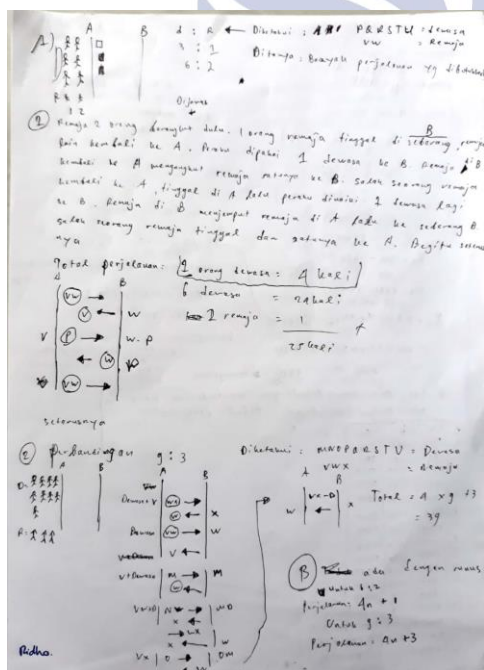 A)
A B
d : R ← Diketahui : PQRSTU = dewasa
3 : 1 VW = Remaja
6 : 2 Ditanya : Banyak perjalanan yg dibutuhkan
Dijawab
① Remaja 2 orang berangkat dulu. 1 orang remaja tinggal di seberang B, remaja
lain kembali ke A. Perahu dipakai 1 dewasa ke B. Remaja di B
kembali ke A mengangkut remaja satunya ke B. Salah seorang remaja
kembali ke A, tinggal di A lalu perahu dinaiki 1 dewasa lagi
ke B. Remaja di B menjemput remaja di A ke seberang B
salah seorang remaja tinggal dan satunya ke A. Begitu
nya
Total perjalanan : 1 orang dewasa = 4 kali
A B 6 dewasa = 24 kali
VW → 2 remaja = 1 +
V ← W 25 kali
V P → W.P
← W P
VW →
seterusnya
② Perbandingan 9 : 3 Diketahui : MNOPQRSTV = Dewasa
A B A B VWX = Remaja
D:
R:
Dewasa
W ← X
Dewasa VW → W
V ←
V+Dewasa M → M
W ←
X ←
→ WX
X ← W
VX O → OM
W ← X Total = 4 x 9 + 3
= 39
B ada dengan rumus
Untuk 6 : 2
Perjalanan : 4n + 1
Untuk 9 : 3
Perjalanan : 4n + 3
Ridho.